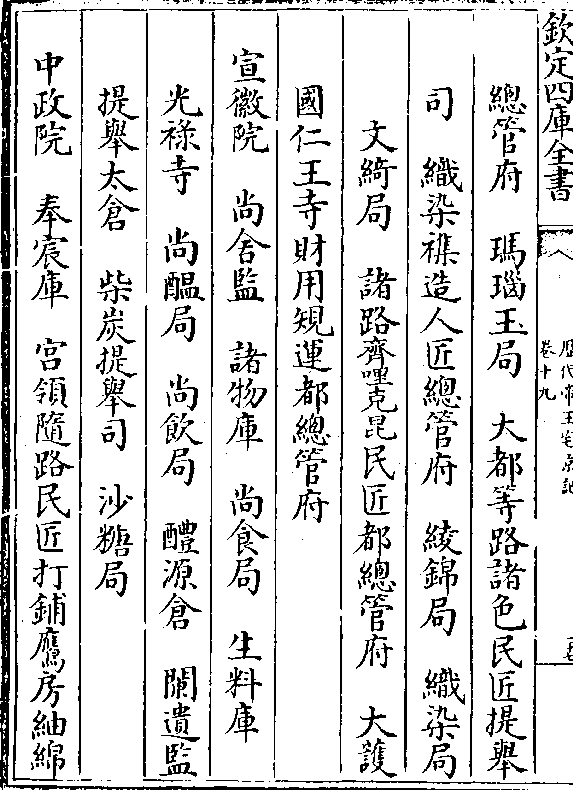 欽定四庫全書
歷代帝王宅京記
卷十九
總管府 瑪瑙玉局 大都等路諸色民匠提舉
司 織染襍造人匠總管府 綾錦局 織染局
文綺局 諸路齊哩克昆民匠都總管府 大護
國仁王寺財用規運都總管府
宣徽院 尚舍監 諸物庫 尚食局 生料庫
光祿寺 尚醖局 尚飲局 醴源倉 闌遺監
提舉太倉 柴炭提舉司 沙糖局
中政院 奉宸庫 宮領隨路民匠打鋪鷹房紬綿